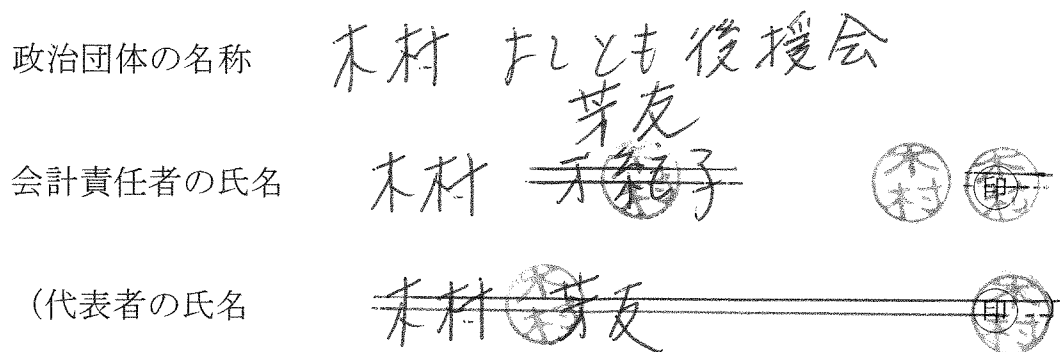 政治団体の名称 木村 よしとも後援会
芽友
会計責任者の氏名 木村 子 木村 印
(代表者の氏名 木村 芽友 印